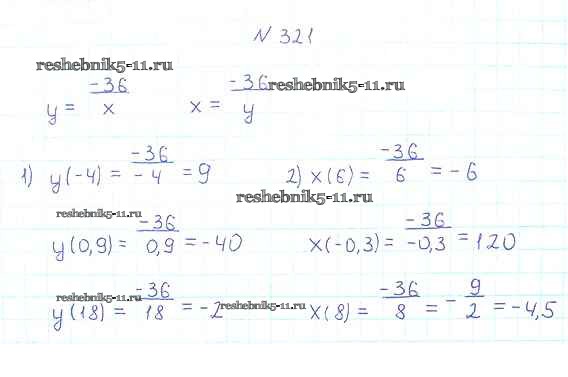 N 321
reshebnik5-11.ru
y = -36/x x = -36/y reshebnik5-11.ru
1) y(-4) = -36/-4 = 9 2) x(6) = -36/6 = -6
reshebnik5-11.ru
reshebnik5-11.ru
y(0,9) = -36/0,9 = -40 x(-0,3) = -36/-0,3 = 120
reshebnik5-11.ru reshebnik5-11.ru
y(18) = -36/18 = -2 x(8) = -36/8 = -9/2 = -4,5
reshebnik5-11.ru